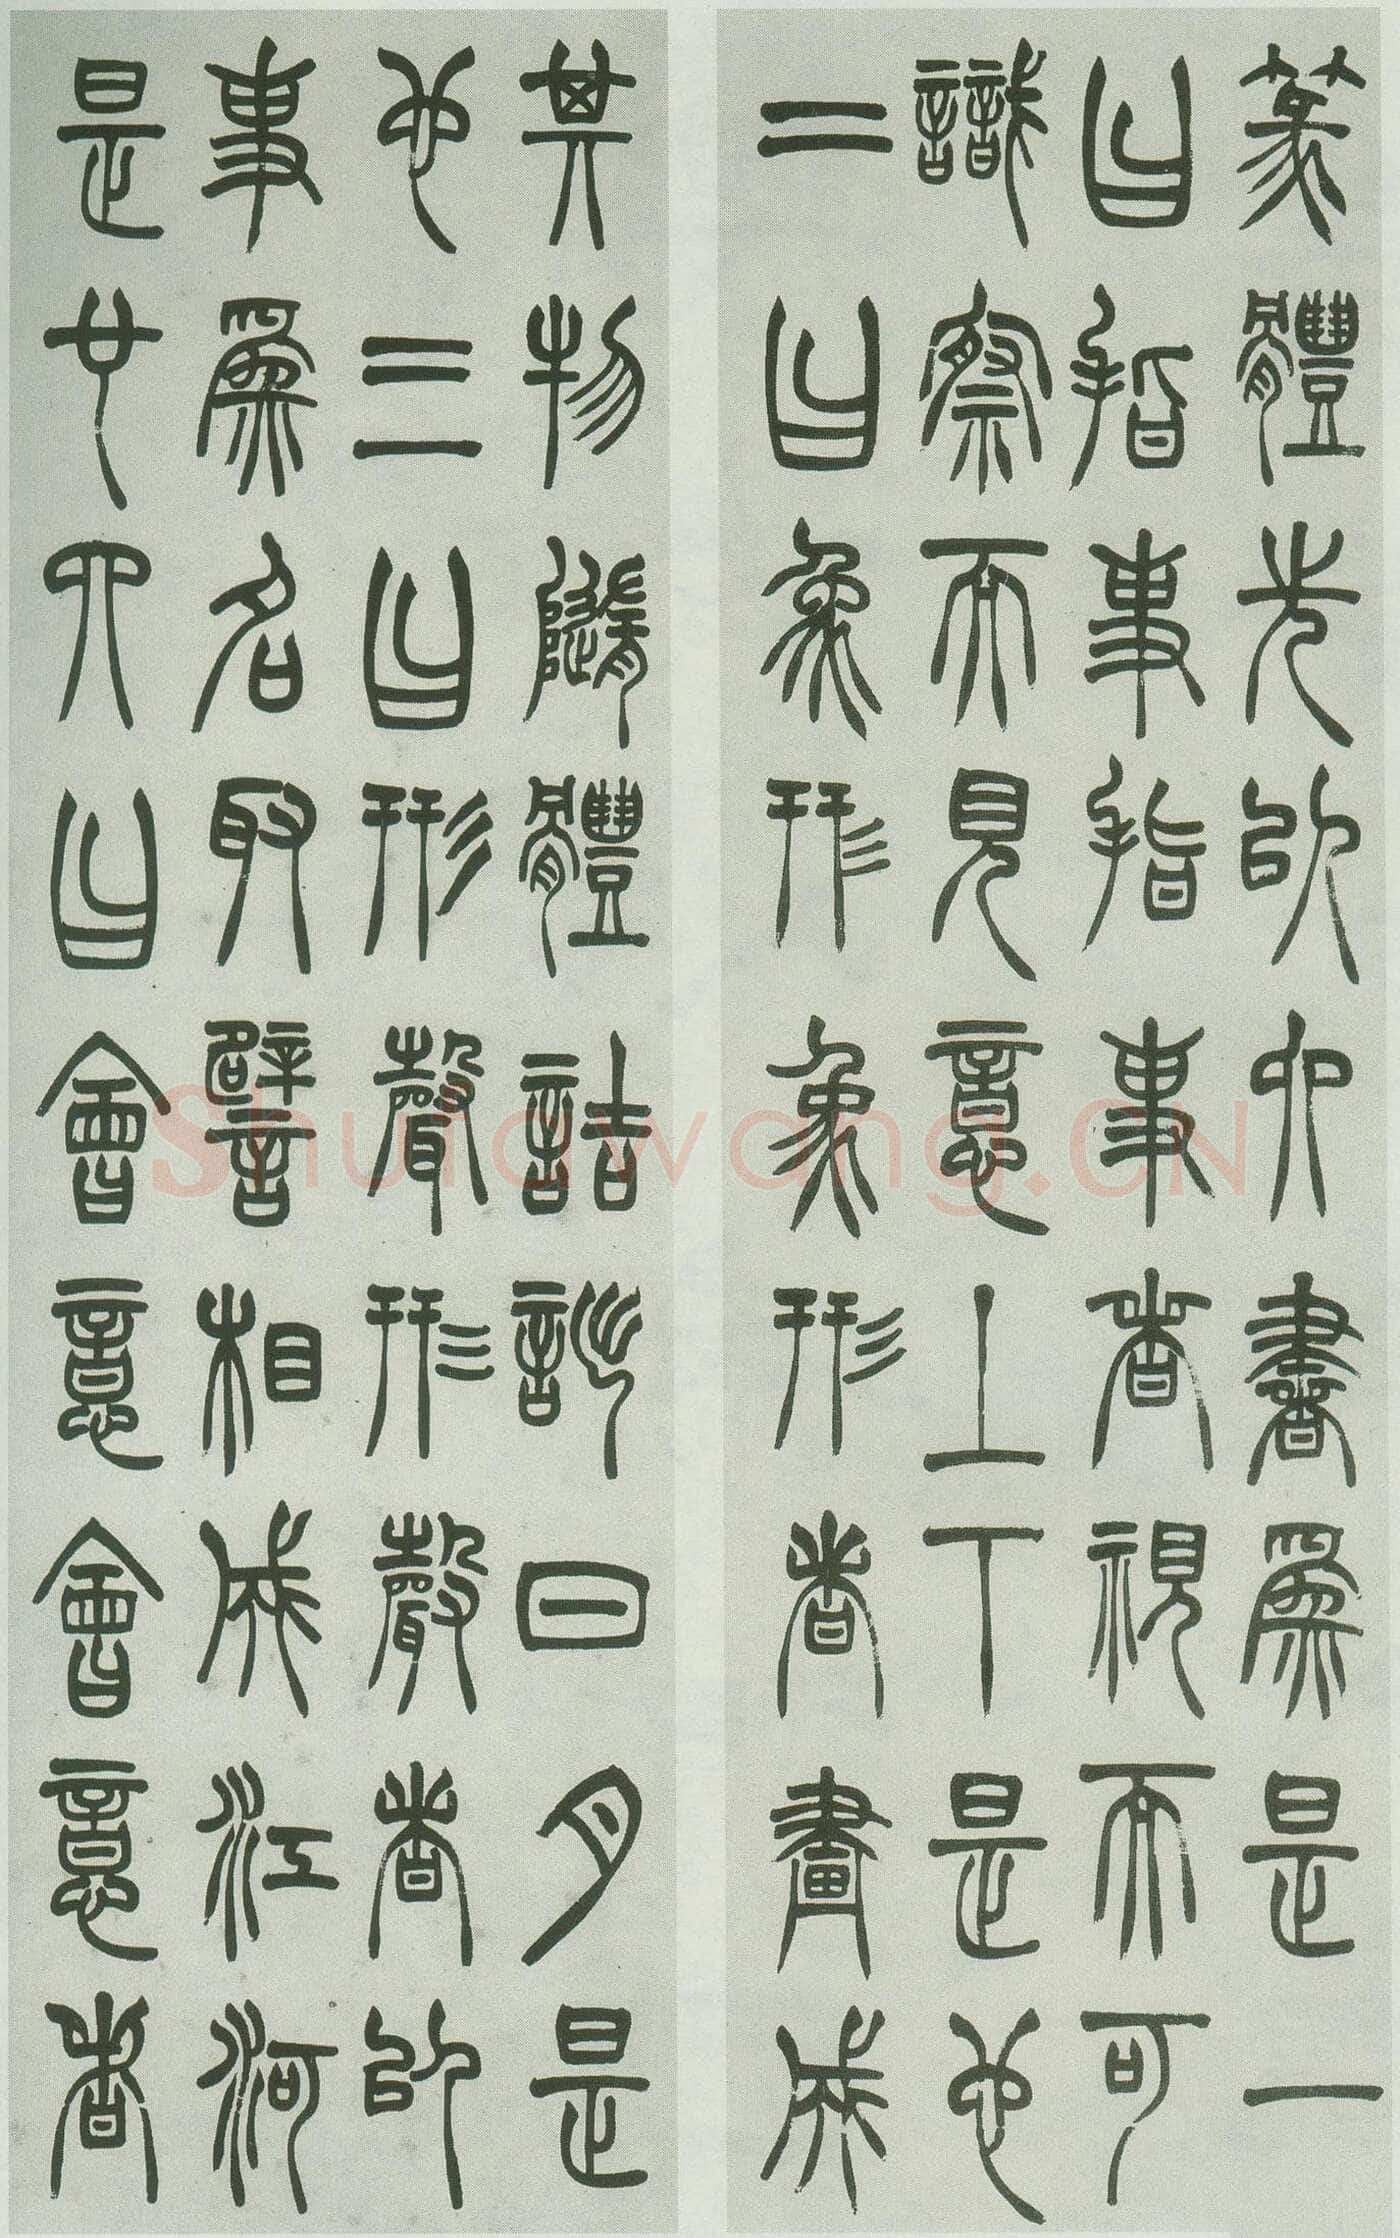 篆體先以六書爲是一
曰指事指事者視而可
識察而見意上下是也
二曰象形象形者畫成
其物隨體詰詘日月是
也三曰形聲形聲者以
事爲名取譬相成江河
是也四曰會意會意者
Shufawang.CN